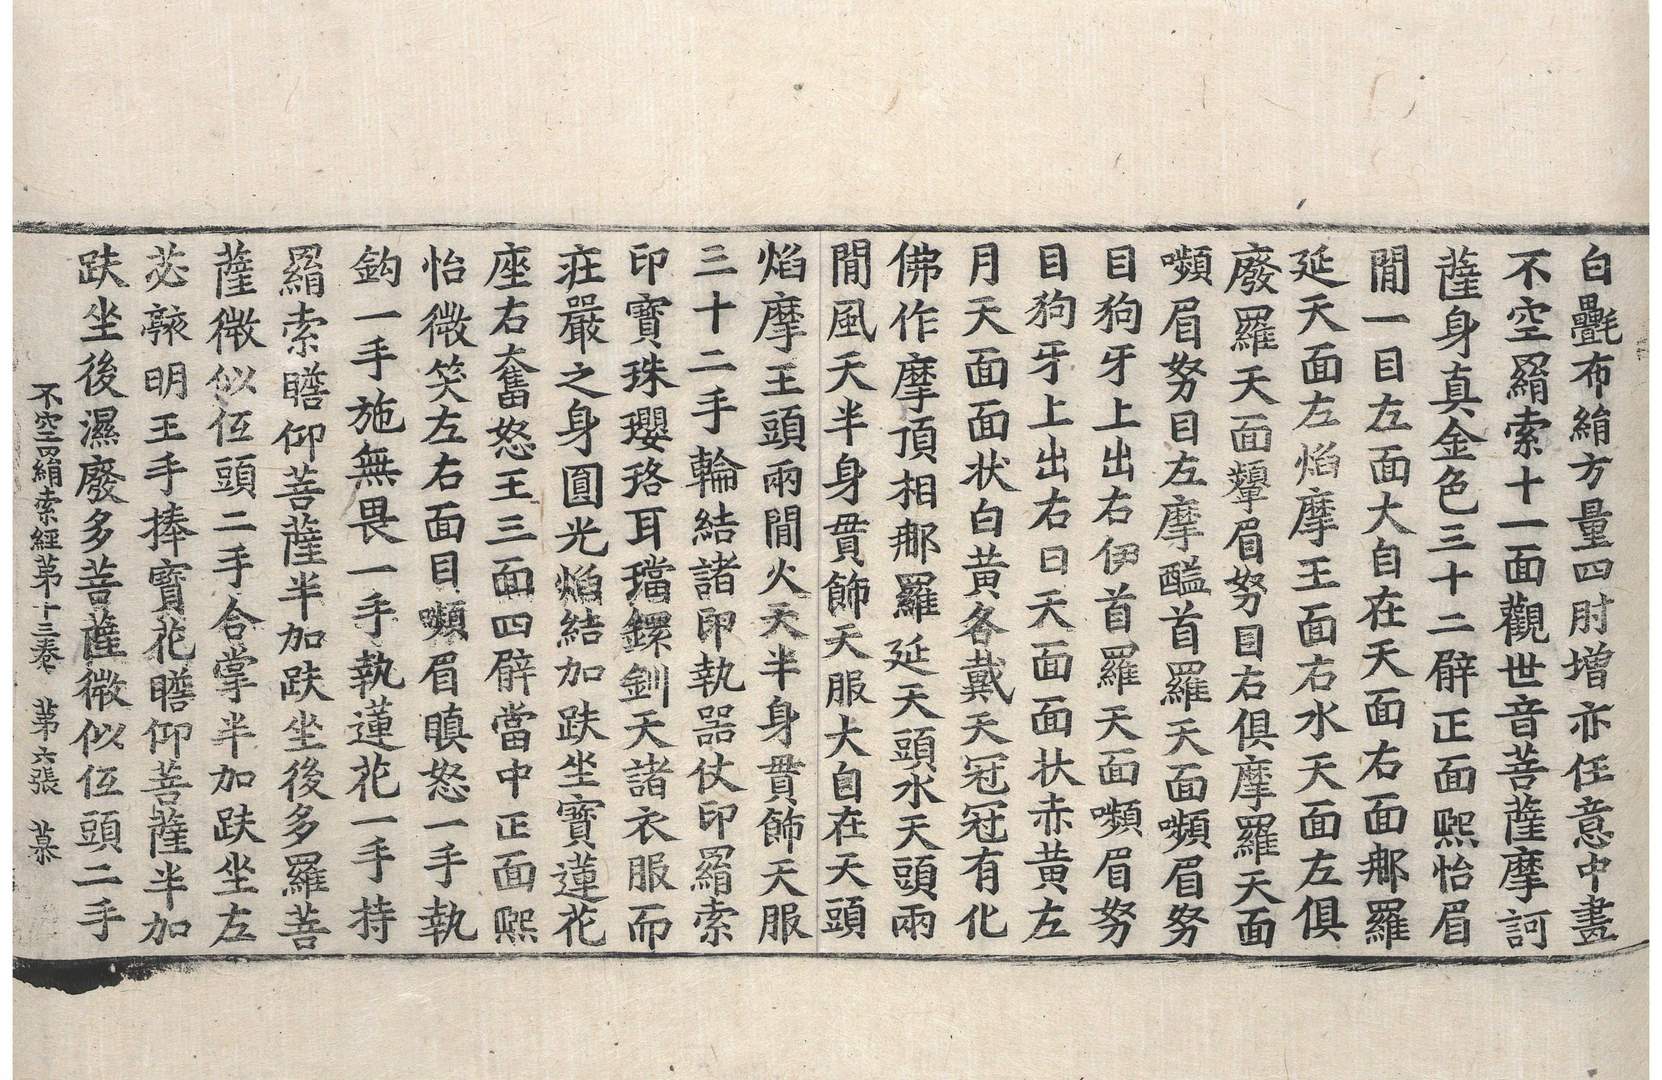 白㲲布絹方量四肘增亦任意中畫
不空羂索十一面觀世音菩薩摩訶
薩身真金色三十二臂正面熙怡眉
間一目左面大自在天面右面那羅
延天面左焰摩王面右水天面左俱
廢羅天面顰眉努目右俱摩羅天面
嚬眉努目左摩醯首羅天面嚬眉努
目狗牙上出右伊首羅天面嚬眉努
目狗牙上出右日天面面状赤黄左
月天面面状白黄各戴天冠冠有化
佛作摩頂相那羅延天頭水天頭兩
間風天半身貫飾天服大自在天頭
焰摩王頭兩間火天半身貫飾天服
三十二手輪結諸印執器仗印羂索
印寶珠瓔珞耳璫鐶釧天諸衣服而
莊嚴之身圓光焰結加趺坐寶蓮花
座右奮怒王三面四臂當中正面熙
怡微笑左右面目嚬眉瞋怒一手執
鈎一手施無畏一手執蓮花一手持
羂索瞻仰菩薩半加趺坐後多羅菩
薩微似伍頭二手合掌半加趺坐左
苾㒹明王手捧寶花瞻仰菩薩半加
趺坐後濕廢多菩薩微似伍頭二手
不空羂索經苐十三卷 苐六張 慕